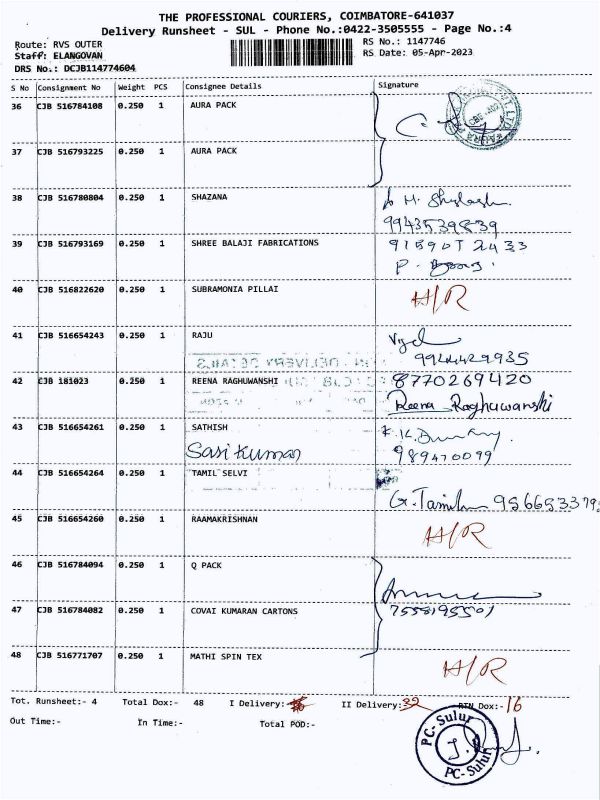 THE PROFESSIONAL COURIERS, COIMBATORE-641037
Delivery Runsheet - SUL - Phone No.:0422-3505555 - Page No.:4
Route: RVS OUTER
RS No.: 1147746
Staff: ELANGOVAN
RS Date: 05-Apr-2023
DRS No.: DCJB114774604
S No Consignment No Weight PCS Consignee Details Signature
36 CJB 516784108 0.250 1 AURA PACK
37 CJB 516793225 0.250 1 AURA PACK
38 CJB 516780804 0.250 1 SHAZANA
9943539839
39 CJB 516793169 0.250 1 SHREE BALAJI FABRICATIONS
40 CJB 516822620 0.250 1 SUBRAMONIA PILLAI H/R
41 CJB 516654243 0.250 1 RAJU
9944429935
42 CJB 181023 0.250 1 REENA RAGHUWANSHI 8770269420
Reena Raghuwanshi
43 CJB 516654261 0.250 1 SATHISH
Sasikumar
44 CJB 516654264 0.250 1 TAMIL SELVI
45 CJB 516654260 0.250 1 RAAMAKRISHNAN H/R
46 CJB 516784094 0.250 1 Q PACK
47 CJB 516784082 0.250 1 COVAI KUMARAN CARTONS 7558195501
48 CJB 516771707 0.250 1 MATHI SPIN TEX H/R
Tot. Runsheet:- 4 Total Dox:- 48 I Delivery:- II Delivery:- 32 RTN Dox:- 16
Out Time:- In Time:- Total POD:-
PC-Sulur
PC-Sulur